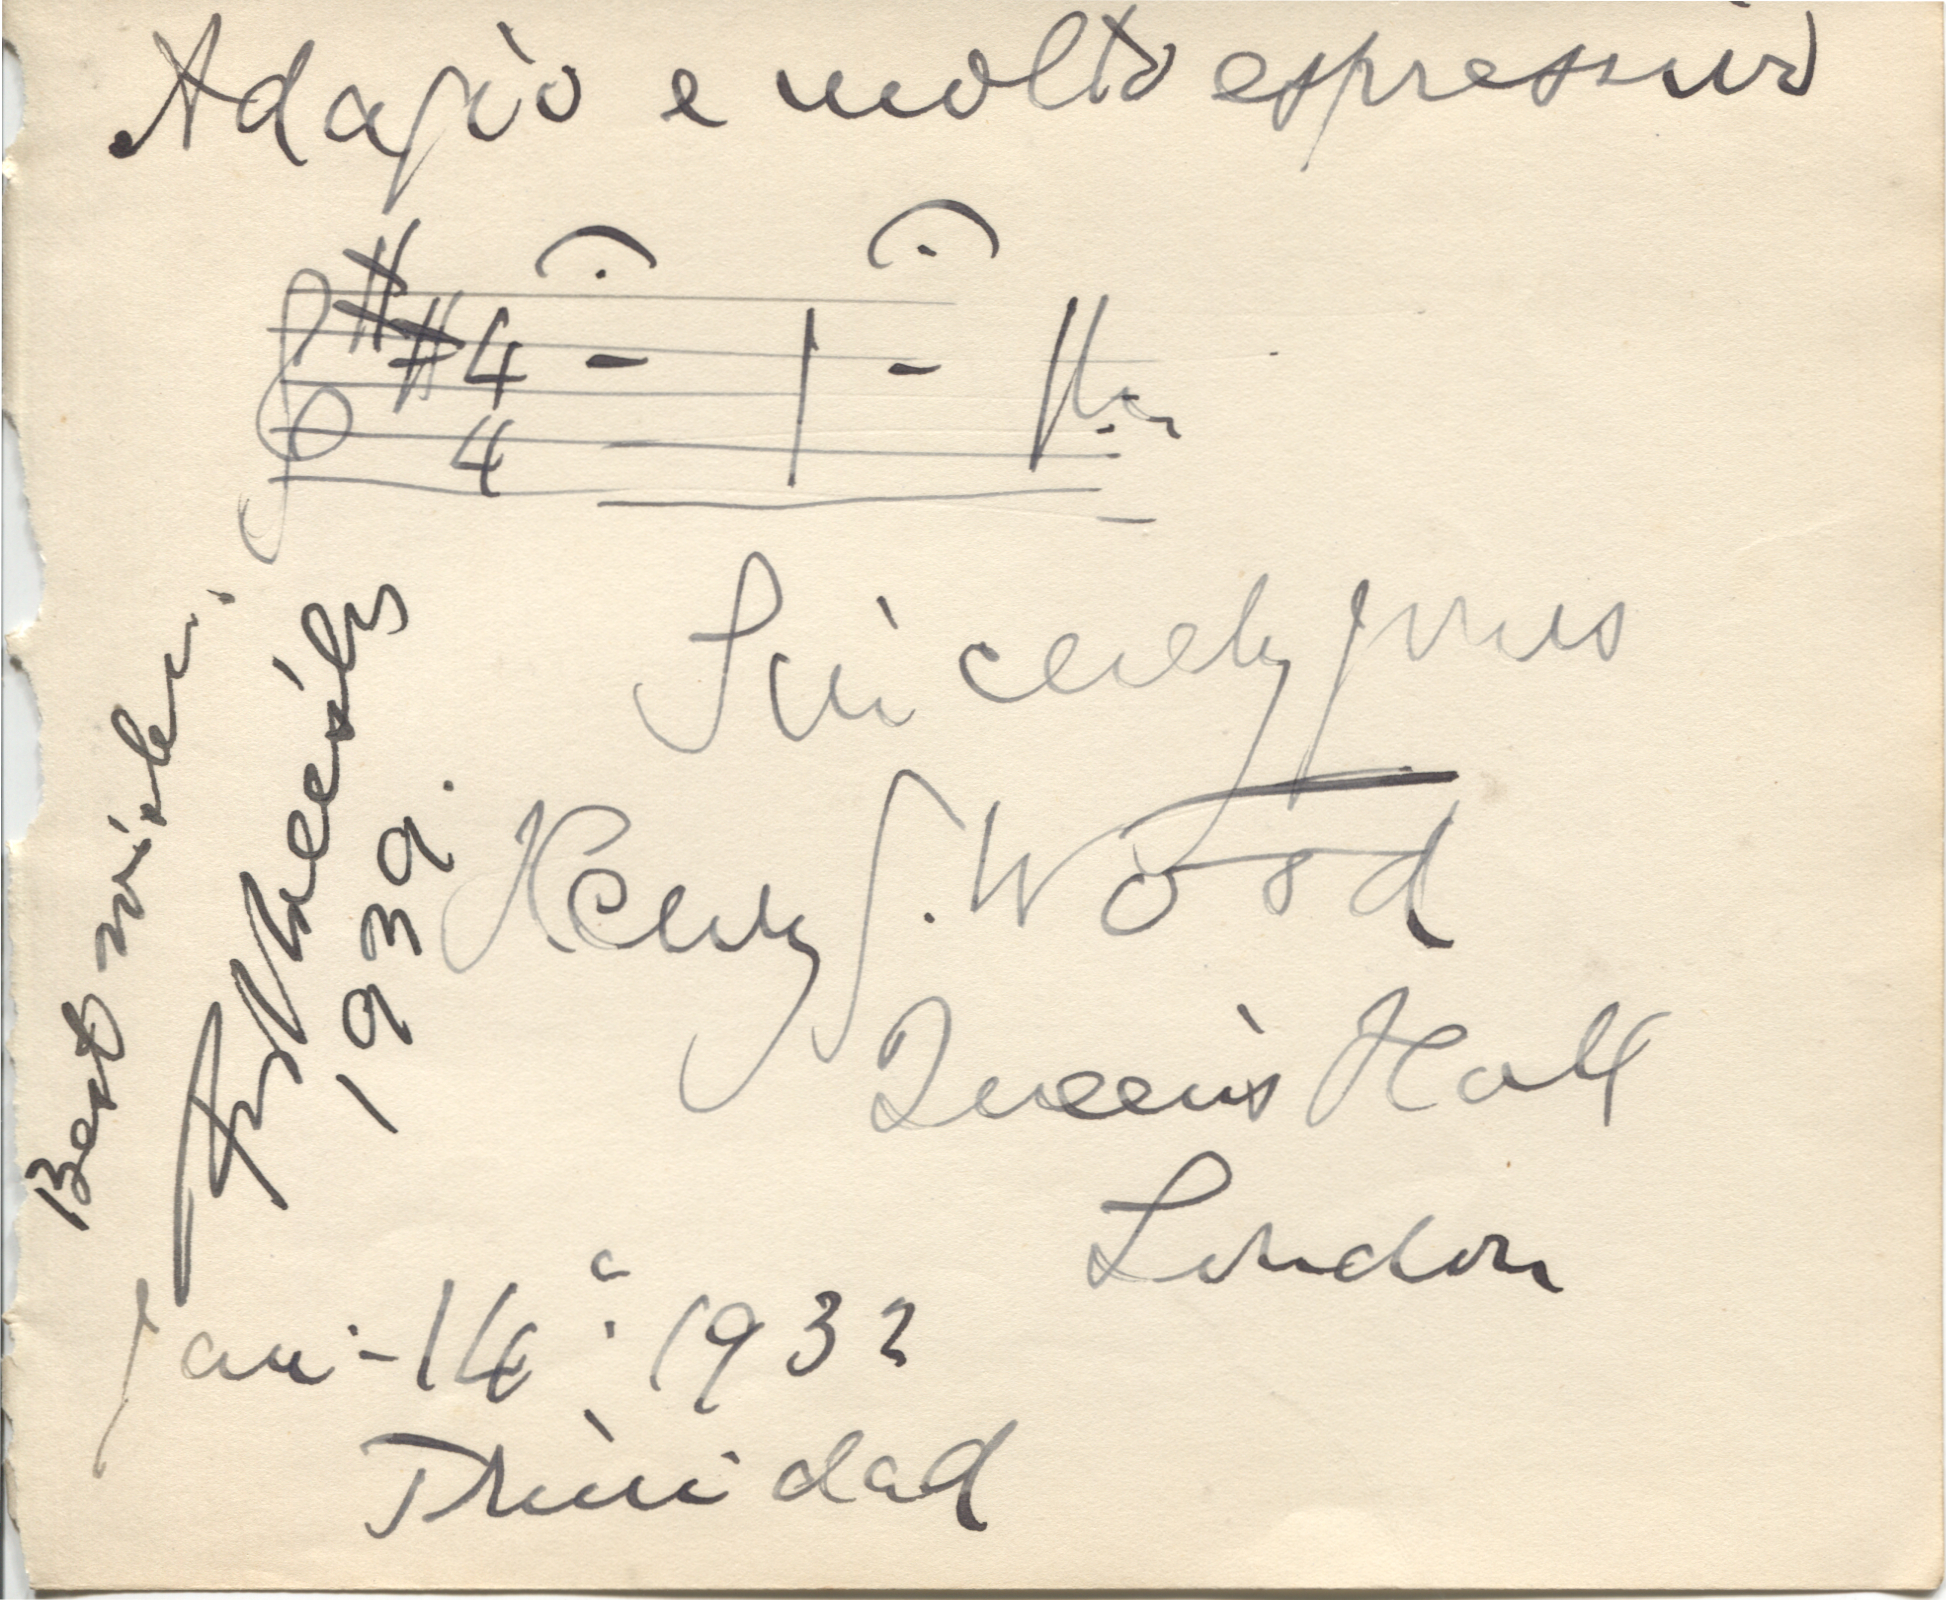 Adagio e molto espressivo
4
4
Sincerely yours
Henry J. Wood
Queen's Hall
London
Jan - 14 1932
Trinidad
Best wishes
1939.